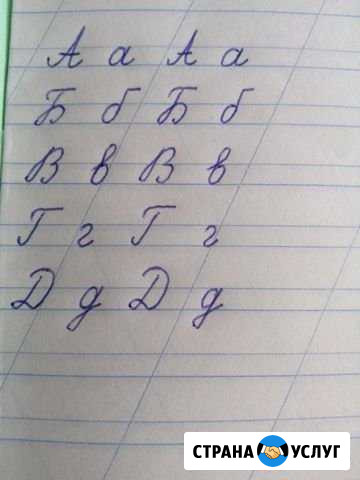 А а А а
Б б Б б
В в В в
Г г Г г
Д д Д д
СТРАНА УСЛУГ